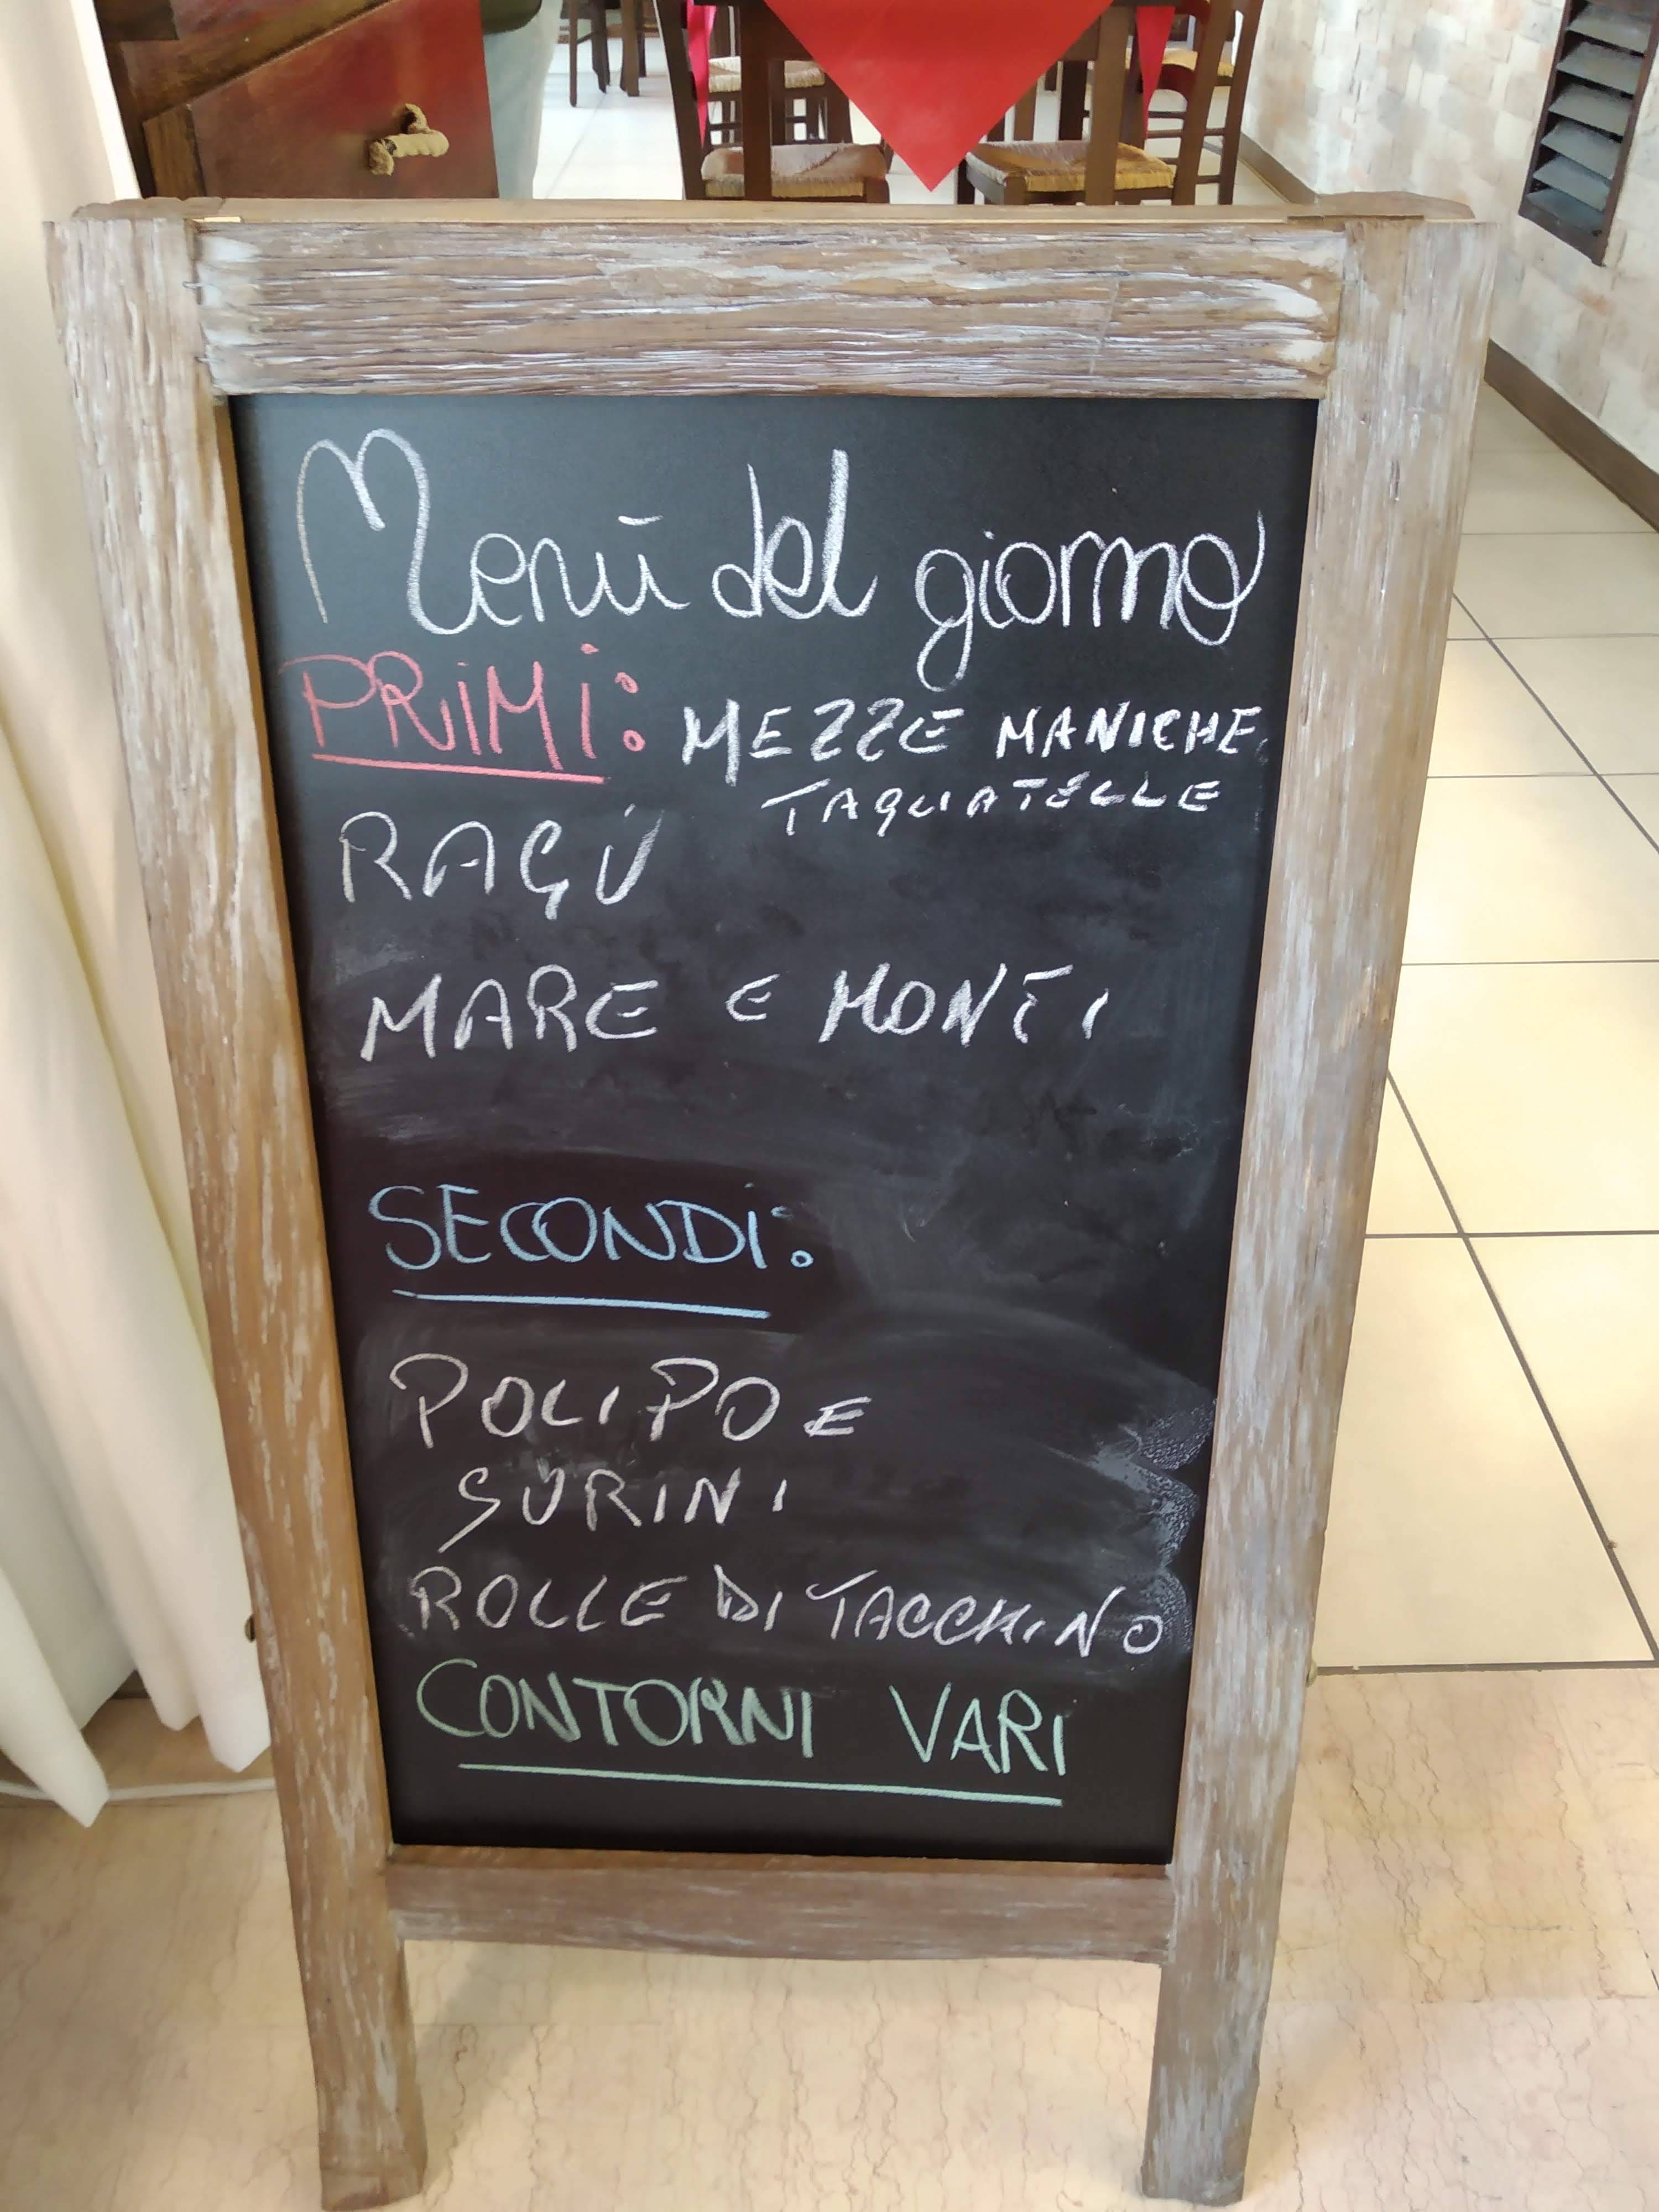 Menù del giorno
PRIMI: MEZZE MANICHE
TAGLIATELLE
RAGÙ
MARE E MONTI
SECONDI:
POLIPO E
SURINI
ROLLE DI TACCHINO
CONTORNI VARI